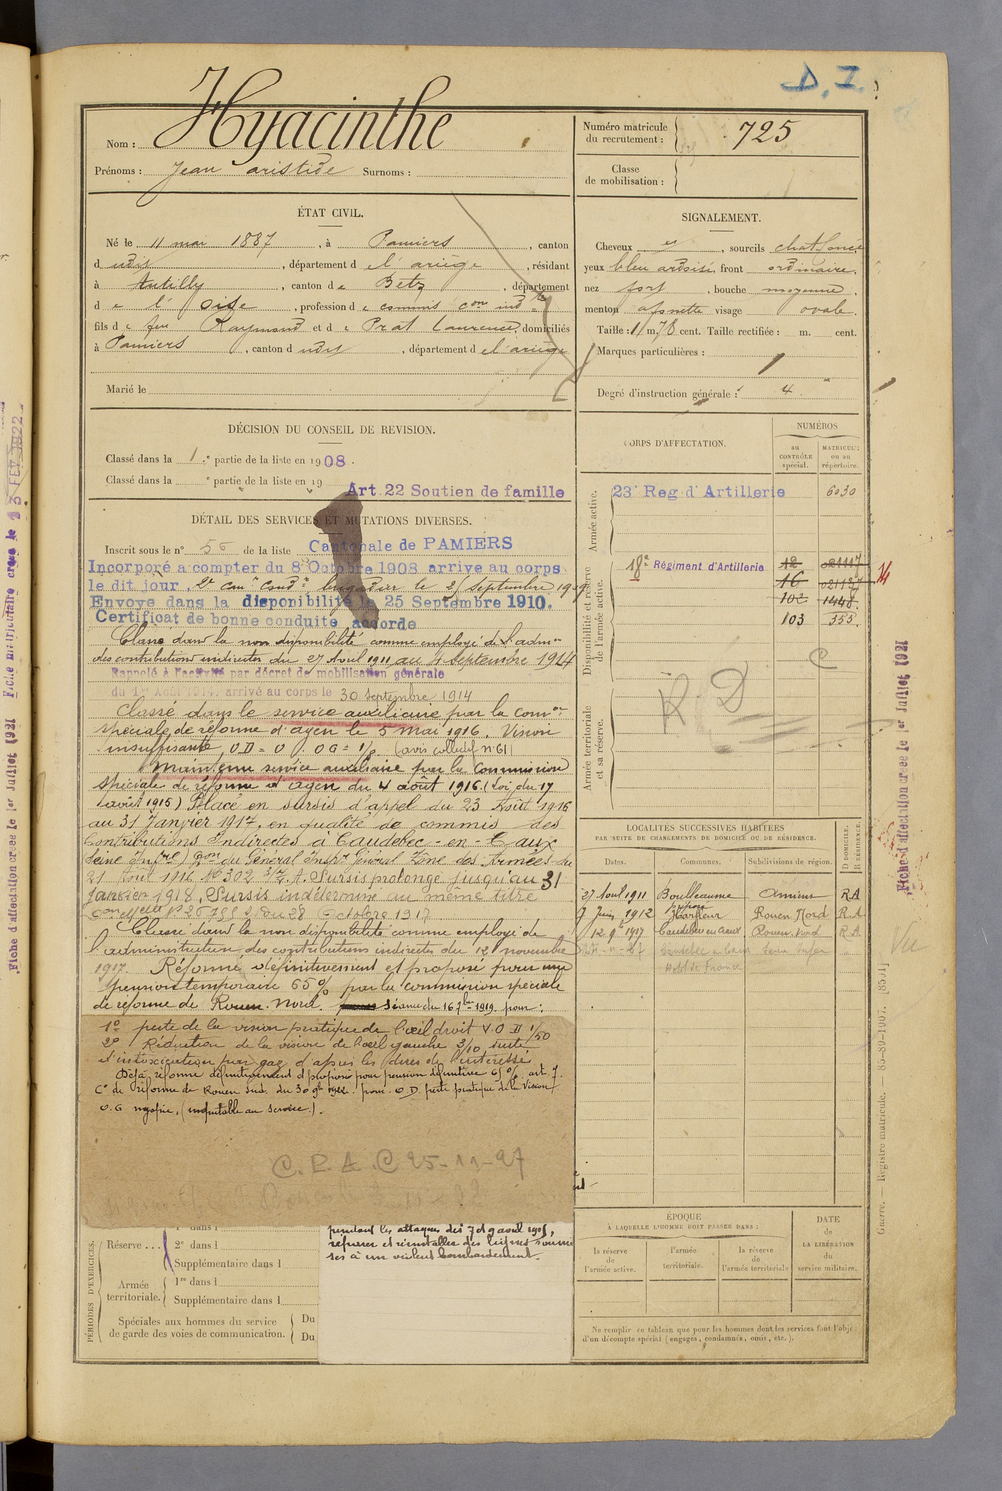 D. I.
Hyacinthe
Nom :
Prénoms : Jean aristide Surnoms :
Numéro matricule du recrutement : 725
Classe de mobilisation :
ÉTAT CIVIL.
Né le 11 mai 1887, à Pamiers, canton
d udit, département d e l'ariège, résidant
à Antilly, canton de Betz, département
d e l'Oise, profession de commis con ind tes
fils de feu Raymond et de Prat Laurence, domiciliés
à Pamiers, canton d udit, département d e l'ariège
Marié le
SIGNALEMENT.
Cheveux et, sourcils chat foncé
yeux bleu ardoisé, front ordinaire
nez fort, bouche moyenne
menton à fossette visage ovale.
Taille : 1 m. 78 cent. Taille rectifiée : m. cent.
Marques particulières :
Degré d'instruction générale : 4
DÉCISION DU CONSEIL DE REVISION.
Classé dans la 1re partie de la liste en 1908.
Classé dans la e partie de la liste en 19
Art. 22 Soutien de famille
DÉTAIL DES SERVICES ET MUTATIONS DIVERSES.
Inscrit sous le n° 56 de la liste Cantonale de PAMIERS
Incorporé a compter du 8 Octobre 1908 arrive au corps
le dit jour, 2e can. cond. brigadier le 25 Septembre 19
Envoyé dans la disponibilité le 25 Septembre 1910.
Certificat de bonne conduite accordé
Classé dans la non disponibilité comme employé de l'adm on
des contributions indirectes du 27 Avril 1911 au 4 Septembre 1914
Rappelé à l'activité par décret de mobilisation générale
du 1er Août 1914. arrivé au corps le 30 septembre 1914
Classé dans le service auxiliaire par la Com on
spéciale de réforme d'agen le 5 mai 1916. Vision
insuffisante O D = 0 O G = 1/2 (avis collectif n° 61)
Maintenu service auxiliaire par la Commission
spéciale de réforme d'agen du 4 août 1916. (Loi du 17
août 1915) Placé en sursis d'appel du 23 Août 1916
au 31 Janvier 1917, en qualité de commis des
Contributions Indirectes à Caudebec-en-Caux
Seine Infre) on du Général Inspr Général Zône des Armées du
21 Août 1916 N° 302 Sursis prolongé jusqu'au 31
Janvier 1918. Sursis indéterminé au même titre
du 28 Octobre 1917
Classé dans la non disponibilité comme employé de
l'administration des contributions indirectes du 12 novembre
1917. Réformé définitivement et proposé pour une
pension temporaire 65% par la commission spéciale
de réforme de Rouen-Nord. Séance du 16 7bre 1919. pour :
1° perte de la vision pratique de l'œil droit V.O.D 1/50
2° Réduction de la vision de l'œil gauche 3/10 suite
d'intoxication par gaz, d'après les dires de l'intéressé
Déjà réformé définitivement et proposé pour pension définitive 65% art 7.
Con de réforme de Rouen Sud. du 30 9bre 1922. pour O.D. perte pratique de la vision
O.G myopie, (inimputable au service).
C.R.A.C 25-11-27
pendant les attaques des 7 et 9 avril 1918,
réparer et réinstaller des lignes soumi
ses à un violent bombardement.
1er dans l
Réserve ... 2e dans l
Supplémentaire dans l
Armée territoriale. 1re dans l
Supplémentaire dans l
Spéciales aux hommes du service de garde des voies de communication. Du
Du
PÉRIODES D'EXERCICES.
CORPS D'AFFECTATION.
NUMÉROS
au CONTRÔLE spécial.
MATRICULE ou au répertoire.
Armée active.
23e Reg d'Artillerie 6030
Disponibilité et réserve de l'armée active.
18e Régiment d'Artillerie
12 02117 14
16 02117
102 1448
103 355
Armée territoriale et sa réserve.
R D C
LOCALITÉS SUCCESSIVES HABITÉES
PAR SUITE DE CHANGEMENTS DE DOMICILE OU DE RÉSIDENCE.
Dates. Communes. Subdivisions de région. D DOMICILE. R RÉSIDENCE.
27 Avril 1911 Bouillancourt Amiens R.A
7 Juin 1912 Harfleur Rouen Nord R.A
12 9bre 1917 Caudebec en Caux Rouen Nord R.A
Hotel de France
ÉPOQUE
À LAQUELLE L'HOMME DOIT PASSER DANS :
la réserve de l'armée active.
l'armée territoriale.
la réserve de l'armée territoriale
DATE de LA LIBÉRATION du service militaire.
Ne remplir ce tableau que pour les hommes dont les services font l'objet
d'un décompte spécial (engagés, condamnés, omis, etc.).
Guerre. — Registre matricule. 85-89-1907. [8501]
Fiche d'affectation créée le 1er Juillet 1921
Fiche d'affectation créée le 1er Juillet 1921
Fiche matriculaire créée le 13 FEV 1922